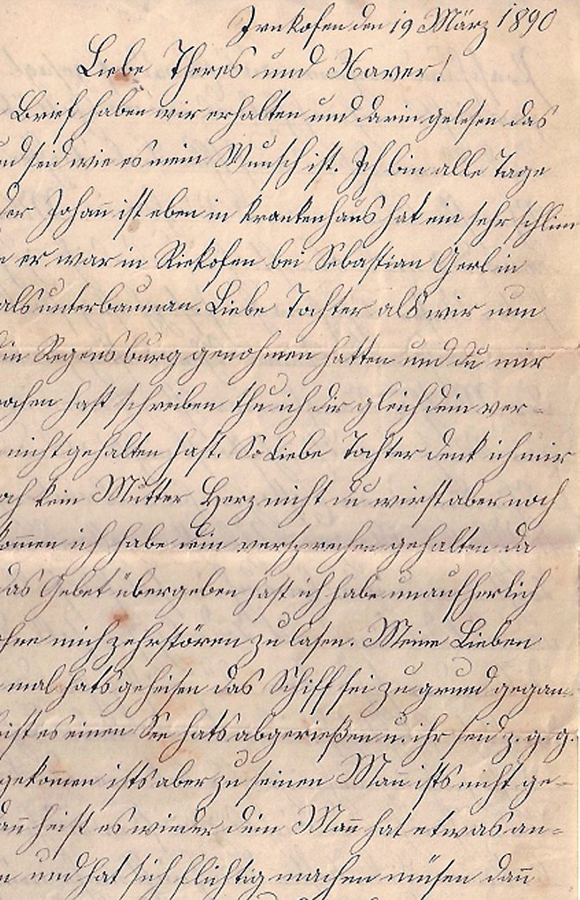 Irnkofen den 19 März 1890
Liebe Theres und Xaver!
Brief haben wir erhalten und darin gelesen das
nd seid wie es mein Wunsch ist. Ich bin alle Tage
der Johan̄ ist eben in Krankenhaus hat ein sehr schlim
e er war in Riekofen bei Sebastian Gerl in
als unterbauman. Liebe Tochter als wir nun
in Regensburg genohmen hatten und du mir
ochen hast schreiben thu ich dir gleich dein ver-
nicht gehalten hast. So Liebe Tochter denk ich mir
och kein Mutter Herz nicht du wirst aber noch
kom̄en ich habe mein versprechen gehalten da
das Gebet übergeben hast ich habe unaufherlich
ohne mich zehrstören zu lasen. Meine Lieben
mal hats geheisen das Schiff sei zu grund gegan-
ist es einen See hats abgerießen u. ihr seid z. g. g.
gekom̄en ists aber zu seinen Man̄ ists nicht ge-
an̄ heist es wieder dein Man̄ hat etwas an=
n und hat sich flichtig machen müsen dan̄